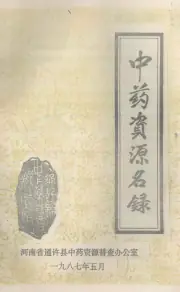 中药資源名録
河南省通许县中药资源普查办公室
一九八七年五月